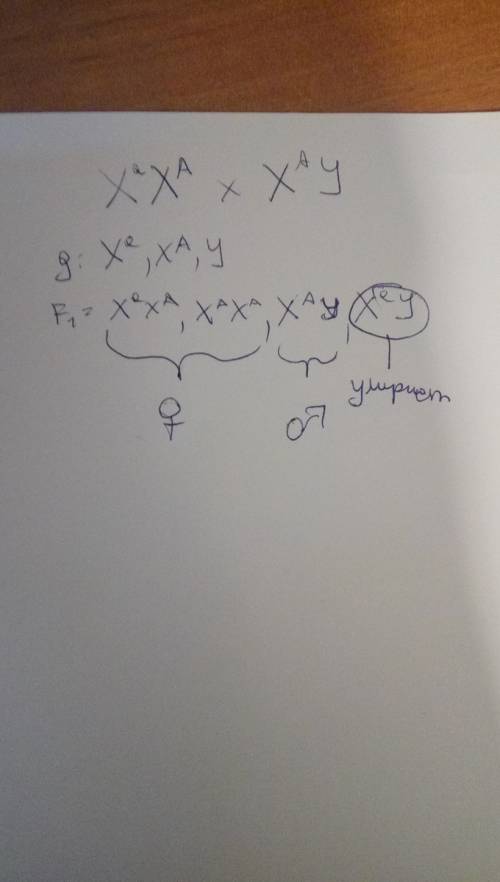 XᵃXᴬ × XᴬY
g: Xᵃ, Xᴬ, Y
F₁ = XᵃXᴬ, XᴬXᴬ, XᴬY, XᵃY
умирает
♀ ♂